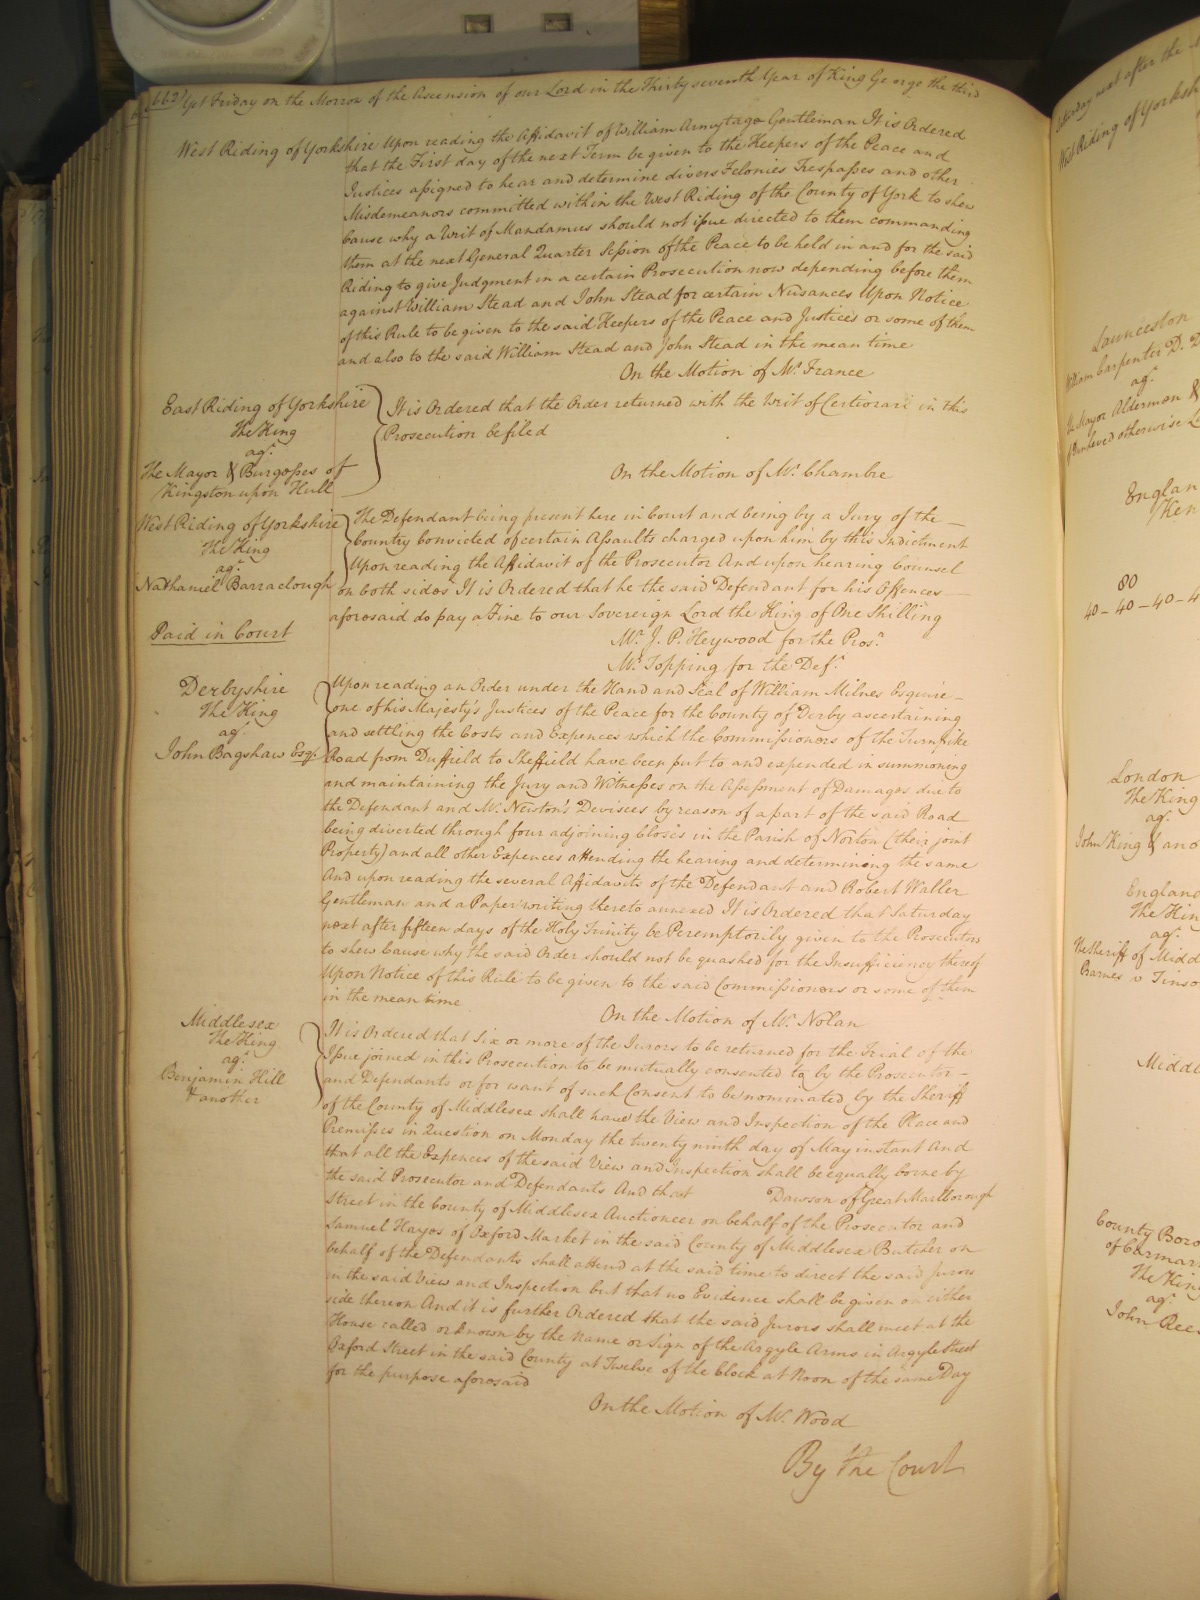 662 Yet Friday on the Morrow of the Ascension of our Lord in the Thirty seventh Year of King George the third
West Riding of Yorkshire Upon reading the Affidavit of William Armytage Gentleman It is Ordered
that the First day of the next Term be given to the Keepers of the Peace and
Justices assigned to hear and determine divers Felonies Trespasses and other
Misdemeanors committed within the West Riding of the County of York to shew
Cause why a Writ of Mandamus should not issue directed to them commanding
them at the next General Quarter Session of the Peace to be held in and for the said
Riding to give Judgment in a certain Prosecution now depending before them
against William Stead and John Stead for certain Nusances Upon Notice
of this Rule to be given to the said Keepers of the Peace and Justices or some of them
and also to the said William Stead and John Stead in the mean time
On the Motion of Mr. France
East Riding of Yorkshire
The King
agt.
The Mayor & Burgesses of
Kingston upon Hull
It is Ordered that the Order returned with the Writ of Certiorari in this
Prosecution be filed
On the Motion of Mr. Chambre
West Riding of Yorkshire
The King
agt.
Nathaniel Barraclough
Paid in Court
The Defendant being present here in Court and being by a Jury of the
Country Convicted of certain Assaults charged upon him by this Indictment
Upon reading the Affidavit of the Prosecutor And upon hearing Counsel
on both sides It is Ordered that he the said Defendant for his Offences
aforesaid do pay a Fine to our Sovereign Lord the King of One Shilling
Mr. J. P. Heywood for the Prosr.
Mr. Topping for the Deft.
Derbyshire
The King
agt.
John Bagshaw Esqr.
Upon reading an Order under the Hand and Seal of William Milnes Esquire
one of his Majesty's Justices of the Peace for the County of Derby ascertaining
and settling the Costs and Expences which the Commissioners of the Turnpike
Road from Duffield to Sheffield have been put to and expended in summoning
and maintaining the Jury and Witnesses on the Assessment of Damages due to
the Defendant and Mr. Newton's Devisees by reason of a part of the said Road
being diverted through four adjoining Closes in the Parish of Norton (their joint
Property) and all other Expences attending the hearing and determining the same
And upon reading the several Affidavits of the Defendant and Robert Waller
Gentleman and a Paper writing thereto annexed It is Ordered that Saturday
next after fifteen days of the Holy Trinity be Peremptorily given to the Prosecutors
to shew Cause why the said Order should not be quashed for the Insufficiency thereof
Upon Notice of this Rule to be given to the said Commissioners or some of them
in the mean time
On the Motion of Mr. Nolan
Middlesex
The King
agt.
Benjamin Hill
& another
It is Ordered that Six or more of the Jurors to be returned for the Trial of the
Issue joined in this Prosecution to be mutually consented to by the Prosecutor
and Defendants or for want of such Consent to be nominated by the Sheriff
of the County of Middlesex shall have the View and Inspection of the Place and
Premisses in Question on Monday the twenty ninth day of May instant And
that all the Expences of the said View and Inspection shall be equally borne by
the said Prosecutor and Defendants And that Dawson of Great Marlborough
Street in the County of Middlesex Auctioneer on behalf of the Prosecutor and
Samuel Hayes of Oxford Market in the said County of Middlesex Butcher on
behalf of the Defendants shall attend at the said time to direct the said Jurors
in the said View and Inspection but that no Evidence shall be given on either
side thereon And it is further Ordered that the said Jurors shall meet at the
House called or known by the Name or Sign of the Argyle Arms in Argyle Street
Oxford Street in the said County at Twelve of the Clock at Noon of the same Day
for the purpose aforesaid
On the Motion of Mr. Wood
By the Court
Saturday next after the
West Riding of Yorksh
Launceston
William Carpenter D. D.
agt.
The Mayor Alderman &
of Dunheved otherwise
Englan
Ken
80
40 - 40 - 40 - 4
London
The King
agt.
John King & ano
England
The Kin
agt.
The Sheriff of Midd
Barnes v Tinso
Middle
County Boro
of Carmar
The Kin
agt.
John Ree